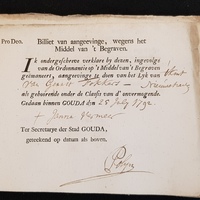 Pro Deo.
Billiet van aangeevinge, wegens het
Middel van 't Begraven.
IK ondergeschreve verklaare by dezen, ingevolge
van de Ordonnantie op 't Middel van 't Begraven
geëmaneert, aangeevinge te doen van het Lyk van
van Gerrit
als gehoorende onder de Classis van d' onvermogende.
Gedaan binnen GOUDA den 25 July 1792.
+ Janna Vermeer
Ter Secretarye der Stad GOUDA,
geteekend op datum als boven.